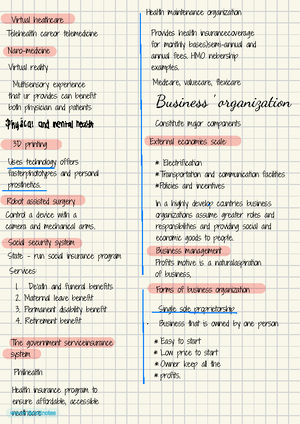 Virtual heathcare
Telehealth career telemedcine
Nano-medicine
Virtual reality
Multisensory experience
that ur provides can benefit
both physician and patients
Physical and mental health
3D printing
Uses technology offers
fasterphototypes and personal
prosthetics.
Robot assisted surgery
Control a device with a
camera and mechanical arms.
Social security system
State - run social insurance program
Services
1. Death and funeral benefits
2. Maternal leave benefit
3. Permanent disability benefit
4. Retirement benefit
The government serviceinsurance
system
Philhealth
Health insurance program to
ensure affordable, accessible
healthcare
Health maintenance organization
Provides health insurancecoverage
for monthly bases/semi-annual and
annual fees. HMO mebership
examples.
Medcare, valuecare, flexicare
Business organization
Constitute major components
External economies scale
* Electrification
*Transportation and communication facilities
*Policies and incentives
In a highly develop countries business
organizations assume greater roles and
responsibilities and providing social and
economic goods to people.
Business management
Profits motive is a naturalaspiration
of business.
Forms of business organization
Single sole proprietorship
Business that is owned by one person
* Easy to start
* Low price to start
* Owner keep all the
* profits.